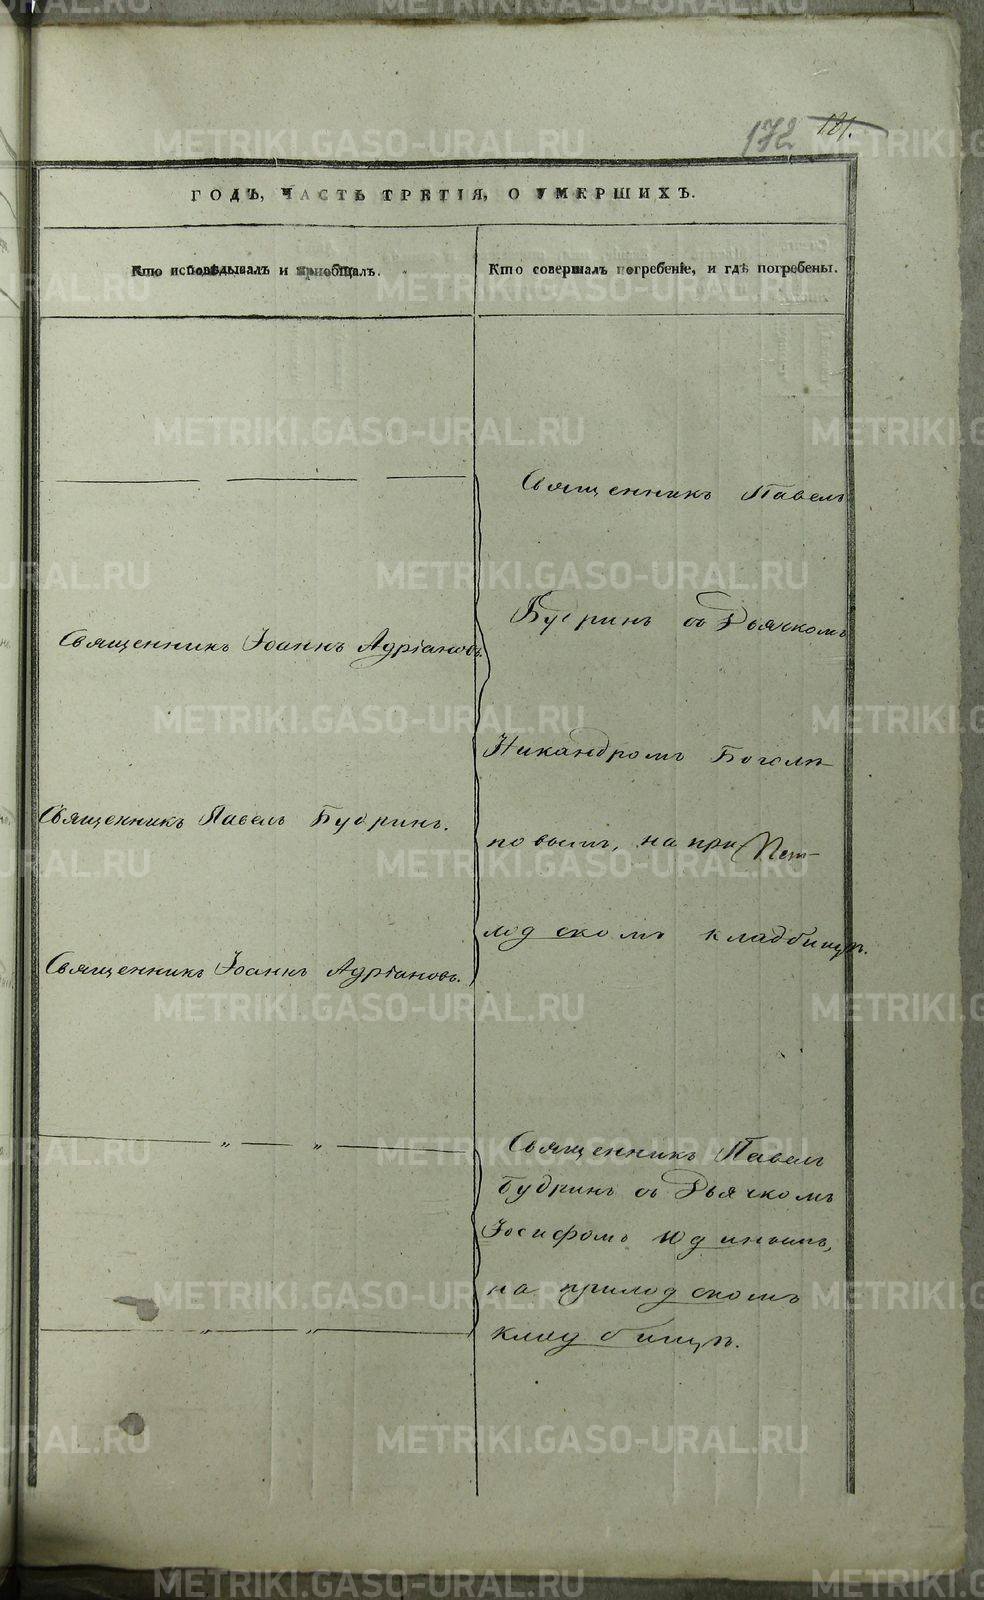 172 121.
ГОДЪ, ЧАСТЬ ТРЕТІЯ, О УМЕРШИХЪ.
Кто исповѣдывалъ и пріобщалъ.
Кто совершалъ погребеніе, и гдѣ погребены.
Священникъ Іоаннъ Адріановъ.
Священникъ Павелъ Будринъ.
Священникъ Іоаннъ Адріановъ.
Священникъ Павелъ
Будринъ съ Дьячкомъ
Никандромъ Боголѣ-
повымъ, на при
ходскомъ кладбищѣ.
Священникъ Павелъ
Будринъ съ Дьячкомъ
Іосифомъ Юдинымъ,
на приходскомъ
кладбищѣ.
METRIKI.GASO-URAL.RU